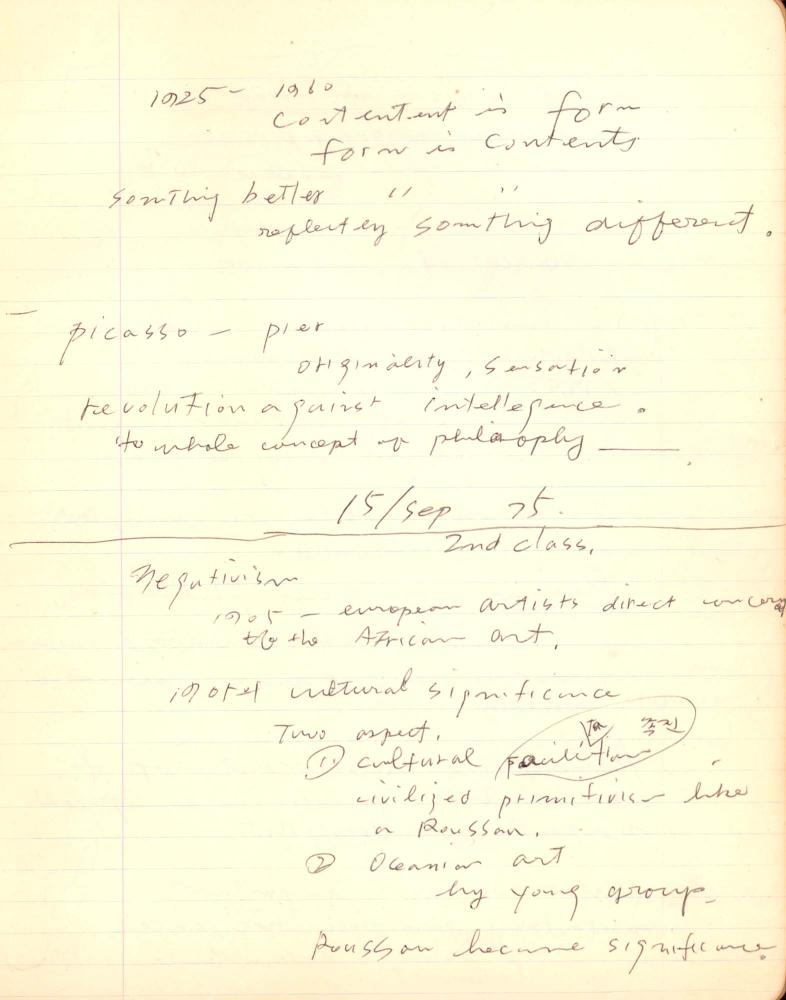 1925 - 1960
contentent is form
form is contents
somthing better " "
reflectey somthing different.
picasso - pier
originality, sensation
revolution against intellegence.
to whole concept of philosophy
15/sep 75.
2nd class,
Negativism
1905 - european artists direct concern
to the African art.
cultural significance
Two aspect.
① cultural facilition 촉진
civilized primitivism like
a Roussau.
② Oceanian art
by young group.
Roussau became significance.